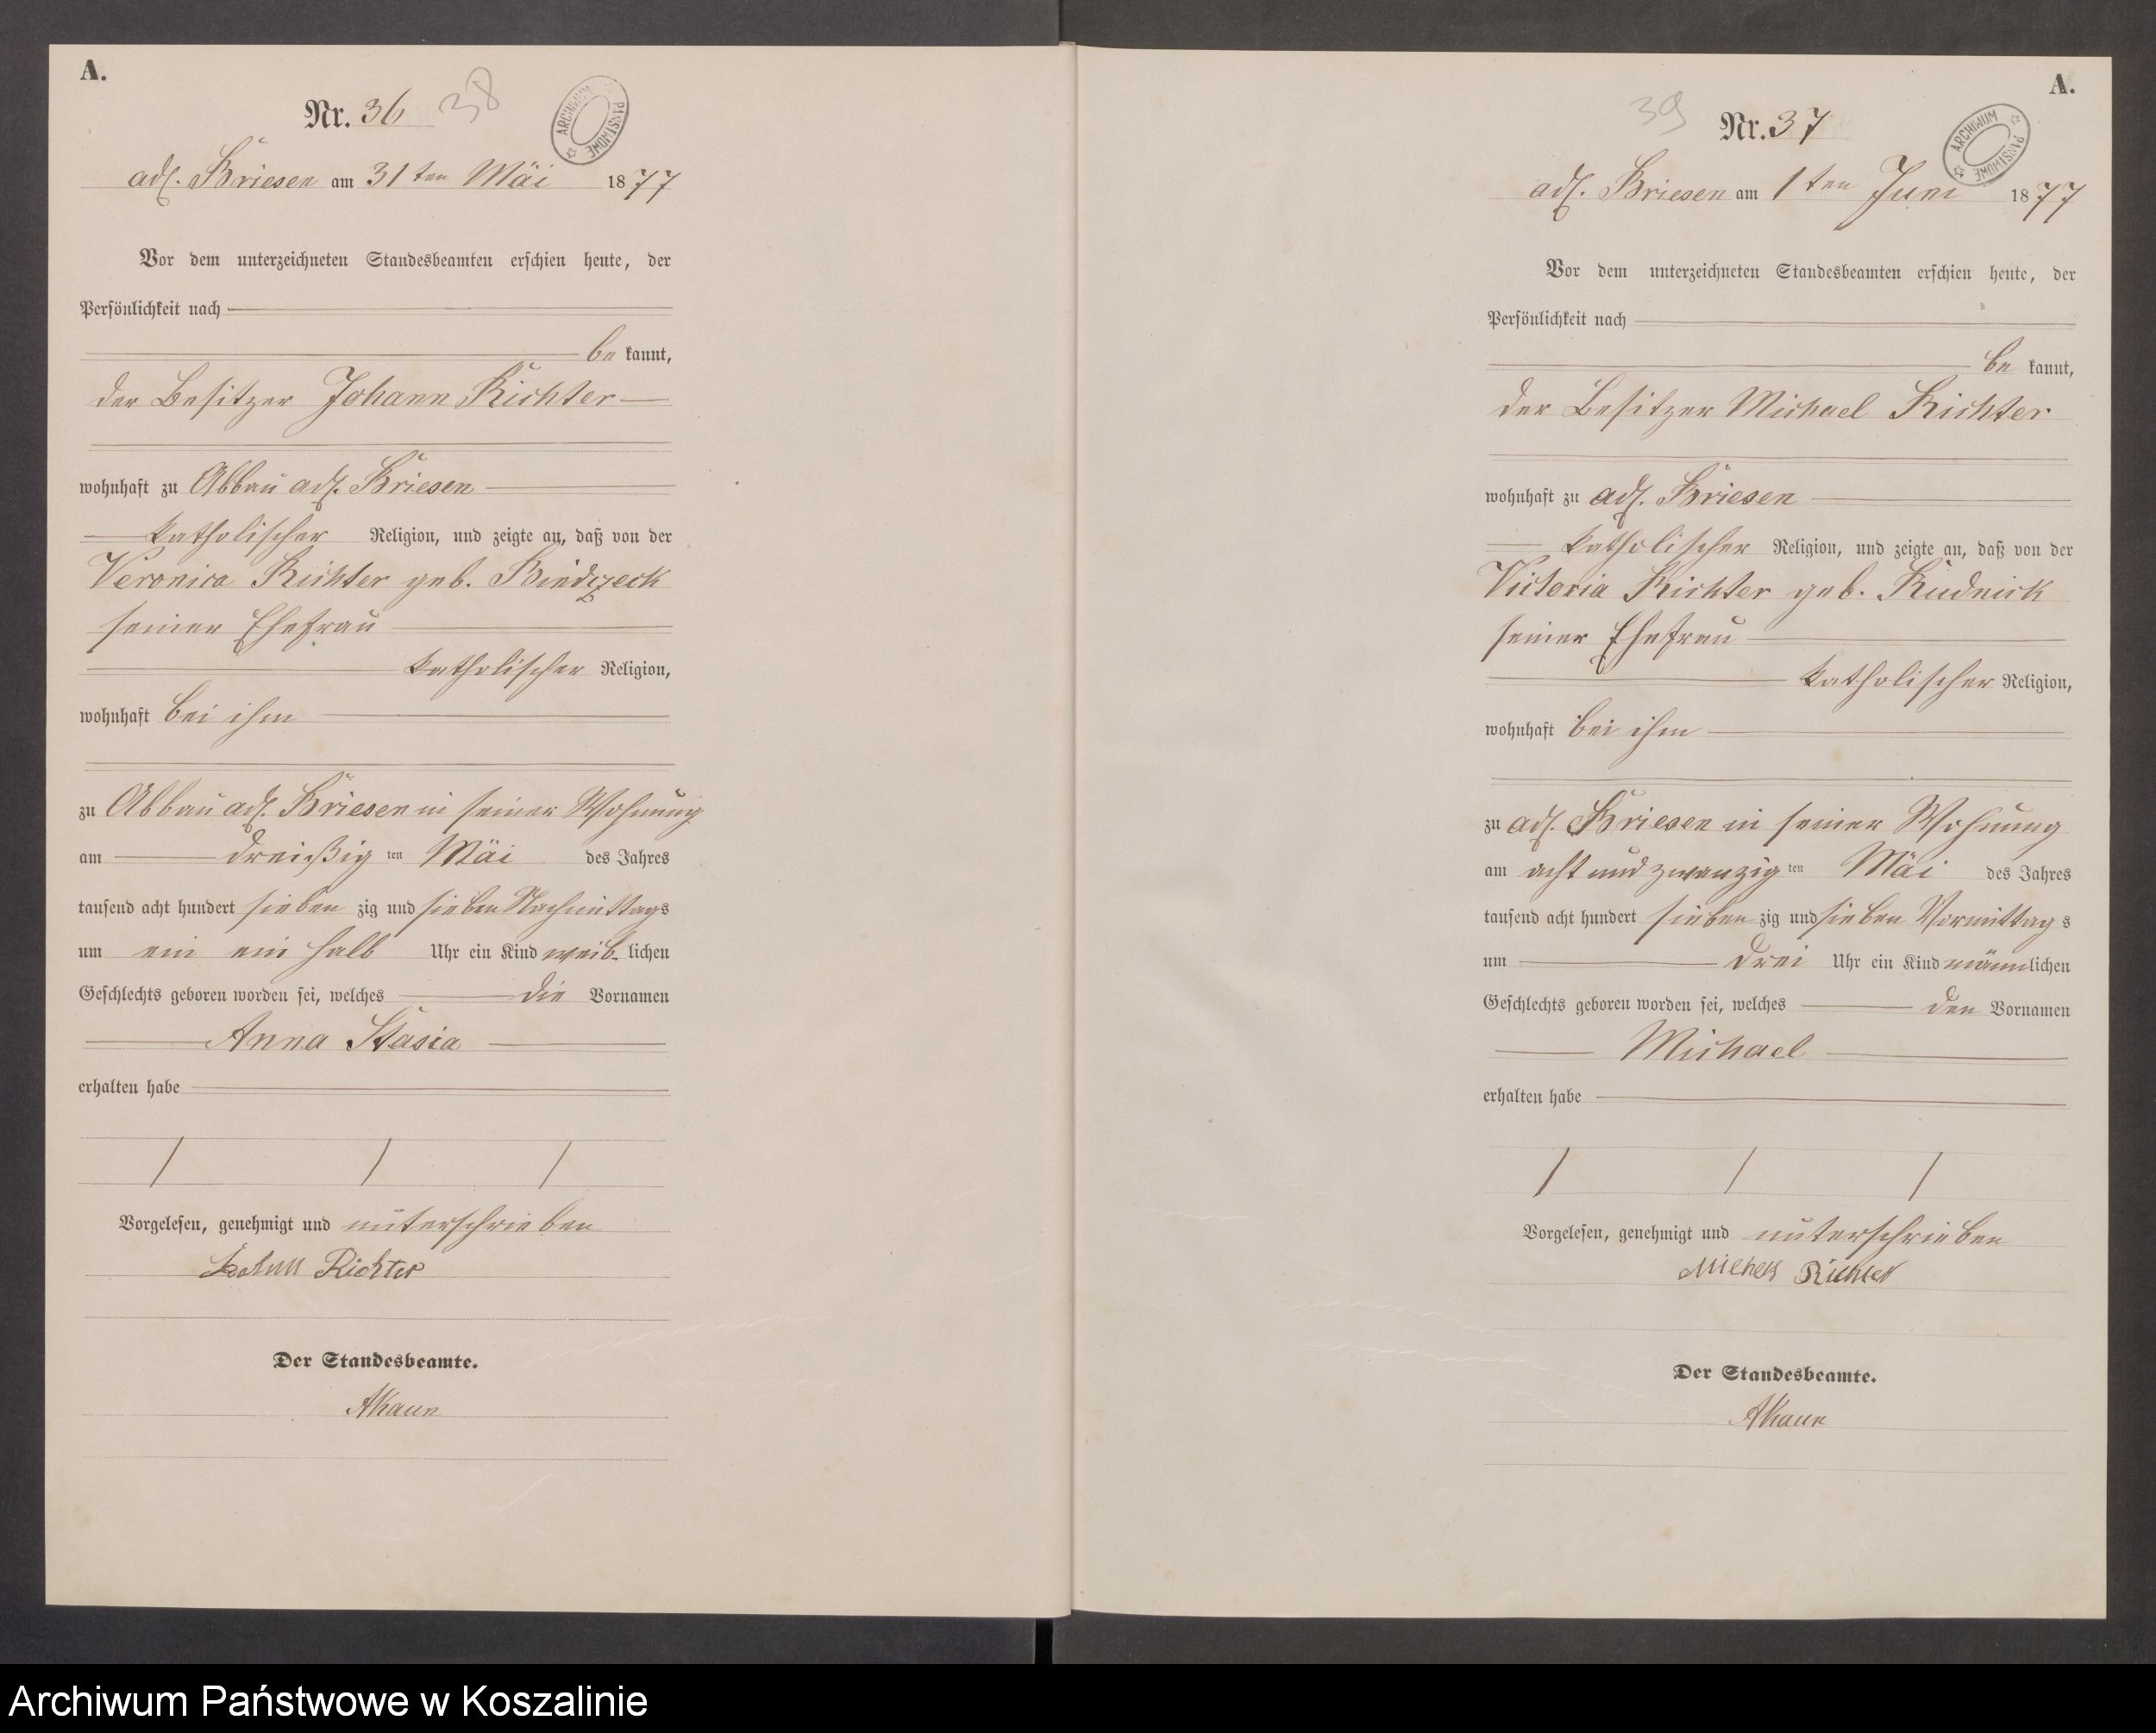 A.
Nr. 36 38
ARCHIWUM PAŃSTWOWE
adl. Briesen am 31ten Mäi 1877
Vor dem unterzeichneten Standesbeamten erschien heute, der
Persönlichkeit nach
be kannt,
der Besitzer Johann Richter
wohnhaft zu Abbau adl. Briesen
katholischer Religion, und zeigte an, daß von der
Veronica Richter geb.
seiner Ehefrau
katholischer Religion,
wohnhaft bei ihm
zu Abbau adl. Briesen in seiner Wohnung
am dreißig ten Mäi des Jahres
tausend acht hundert sieben zig und sieben Nachmittags
um ein ein halb Uhr ein Kind weib- lichen
Geschlechts geboren worden sei, welches die Vornamen
Anna Stasia
erhalten habe
Vorgelesen, genehmigt und unterschrieben
Richter
Der Standesbeamte.
AKaun
A.
39 Nr. 37
ARCHIWUM PAŃSTWOWE
adl. Briesen am 1ten Juni 1877
Vor dem unterzeichneten Standesbeamten erschien heute, der
Persönlichkeit nach
be kannt,
der Besitzer Michael Richter
wohnhaft zu adl. Briesen
katholischer Religion, und zeigte an, daß von der
Victoria Richter geb. Rudnick
seiner Ehefrau
katholischer Religion,
wohnhaft bei ihm
zu adl. Briesen in seiner Wohnung
am acht und zwanzig ten Mäi des Jahres
tausend acht hundert sieben zig und sieben Vormittag s
um drei Uhr ein Kind männlichen
Geschlechts geboren worden sei, welches den Vornamen
Michael
erhalten habe
Vorgelesen, genehmigt und unterschrieben
Richter
Der Standesbeamte.
AKaun
Archiwum Państwowe w Koszalinie